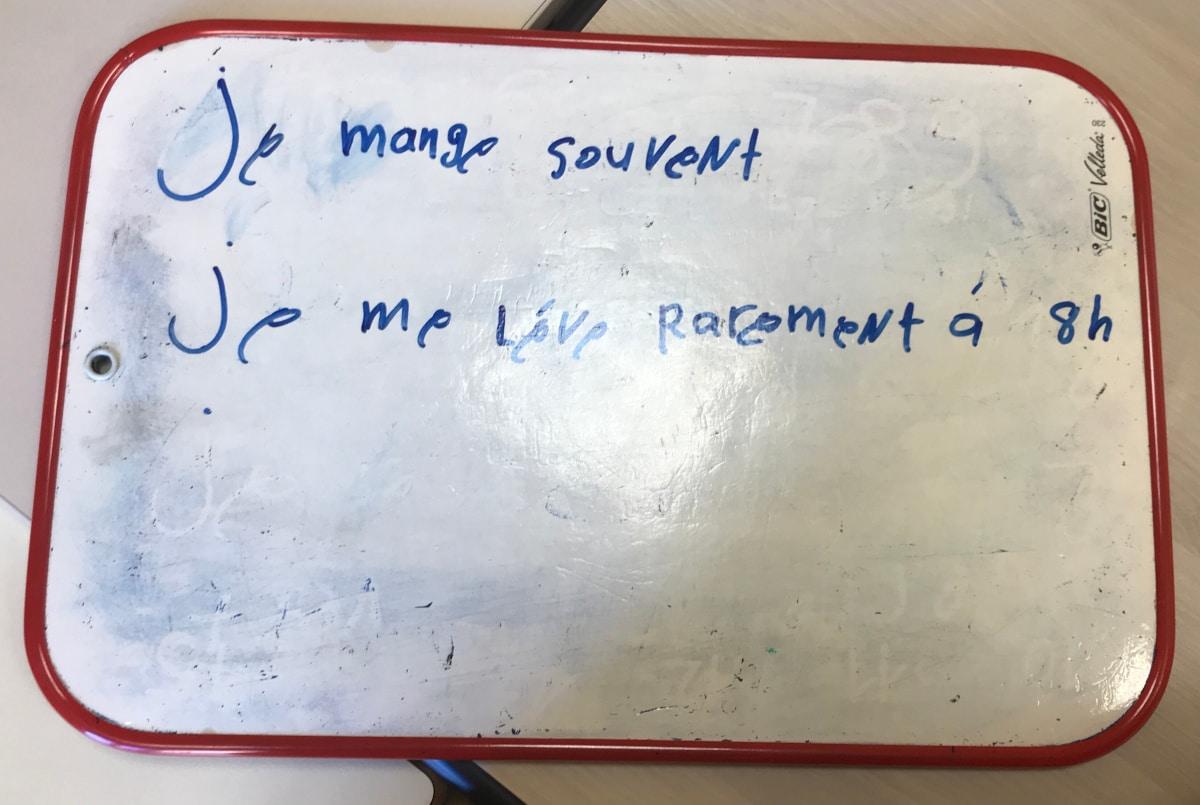 Je mange souvent
Je me Léve Rarement á 8h
BIC Velleda